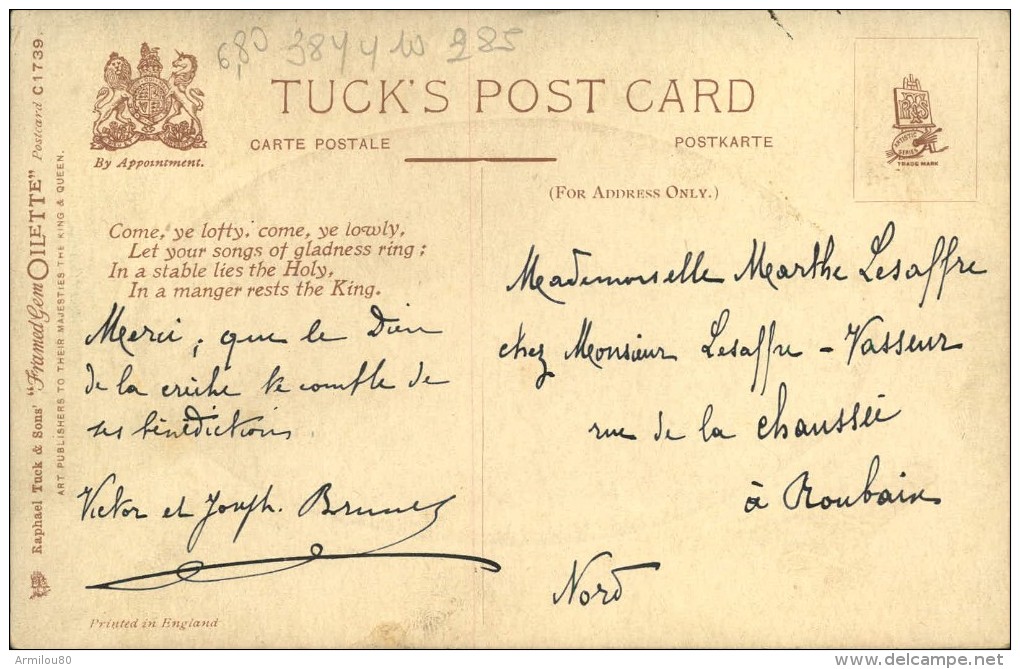 6,80 3844 W 285
TUCK'S POST CARD
CARTE POSTALE
POSTKARTE
By Appointment.
(FOR ADDRESS ONLY.)
ARTISTIC
SERIES
TRADE MARK
Raphael Tuck & Sons' "Framed Gem OILETTE" Postcard C1739.
ART PUBLISHERS TO THEIR MAJESTIES THE KING & QUEEN.
Come, ye lofty, come, ye lowly,
Let your songs of gladness ring;
In a stable lies the Holy,
In a manger rests the King.
Merci, que le Dieu
de la crèche te comble de
ses bénédictions
Victor et Joseph. Brunet
Mademoiselle Marthe Lesaffre
chez Monsieur Lesaffre - Vasseur
rue de la chaussée
à Roubaix
Nord
Printed in England
Armilou80
www.delcampe.net